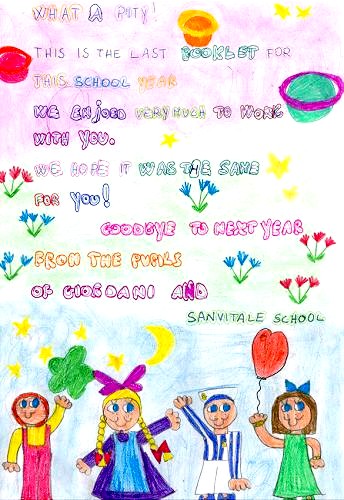 WHAT A PITY!
THIS IS THE LAST BOOKLET FOR
THIS SCHOOL YEAR
WE ENJOED VERY MUCH TO WORK
WITH YOU.
WE HOPE IT WAS THE SAME
FOR YOU!
GOODBYE TO NEXT YEAR
FROM THE PUPILS
OF GIORDANI AND
SANVITALE SCHOOL